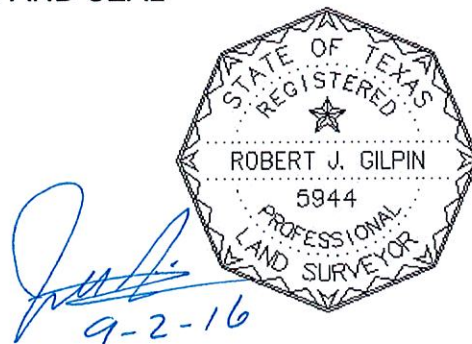 STATE OF TEXAS
REGISTERED
ROBERT J. GILPIN
5944
PROFESSIONAL
LAND SURVEYOR
9-2-16